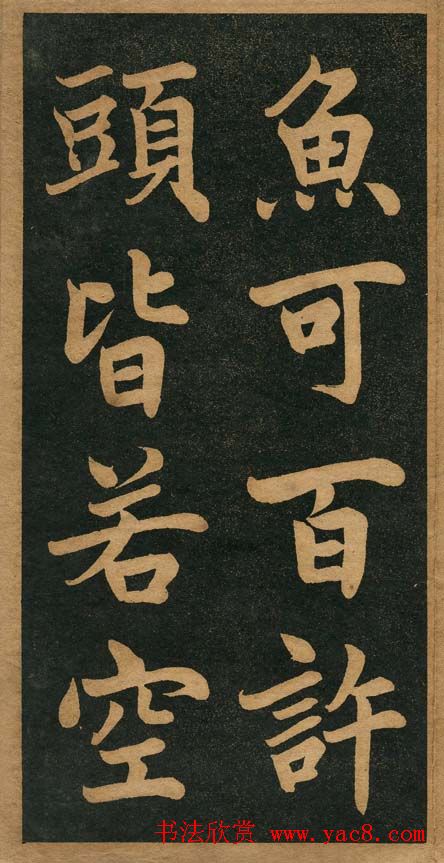 魚可百許
頭皆若空
书法欣赏 www.yac8.com